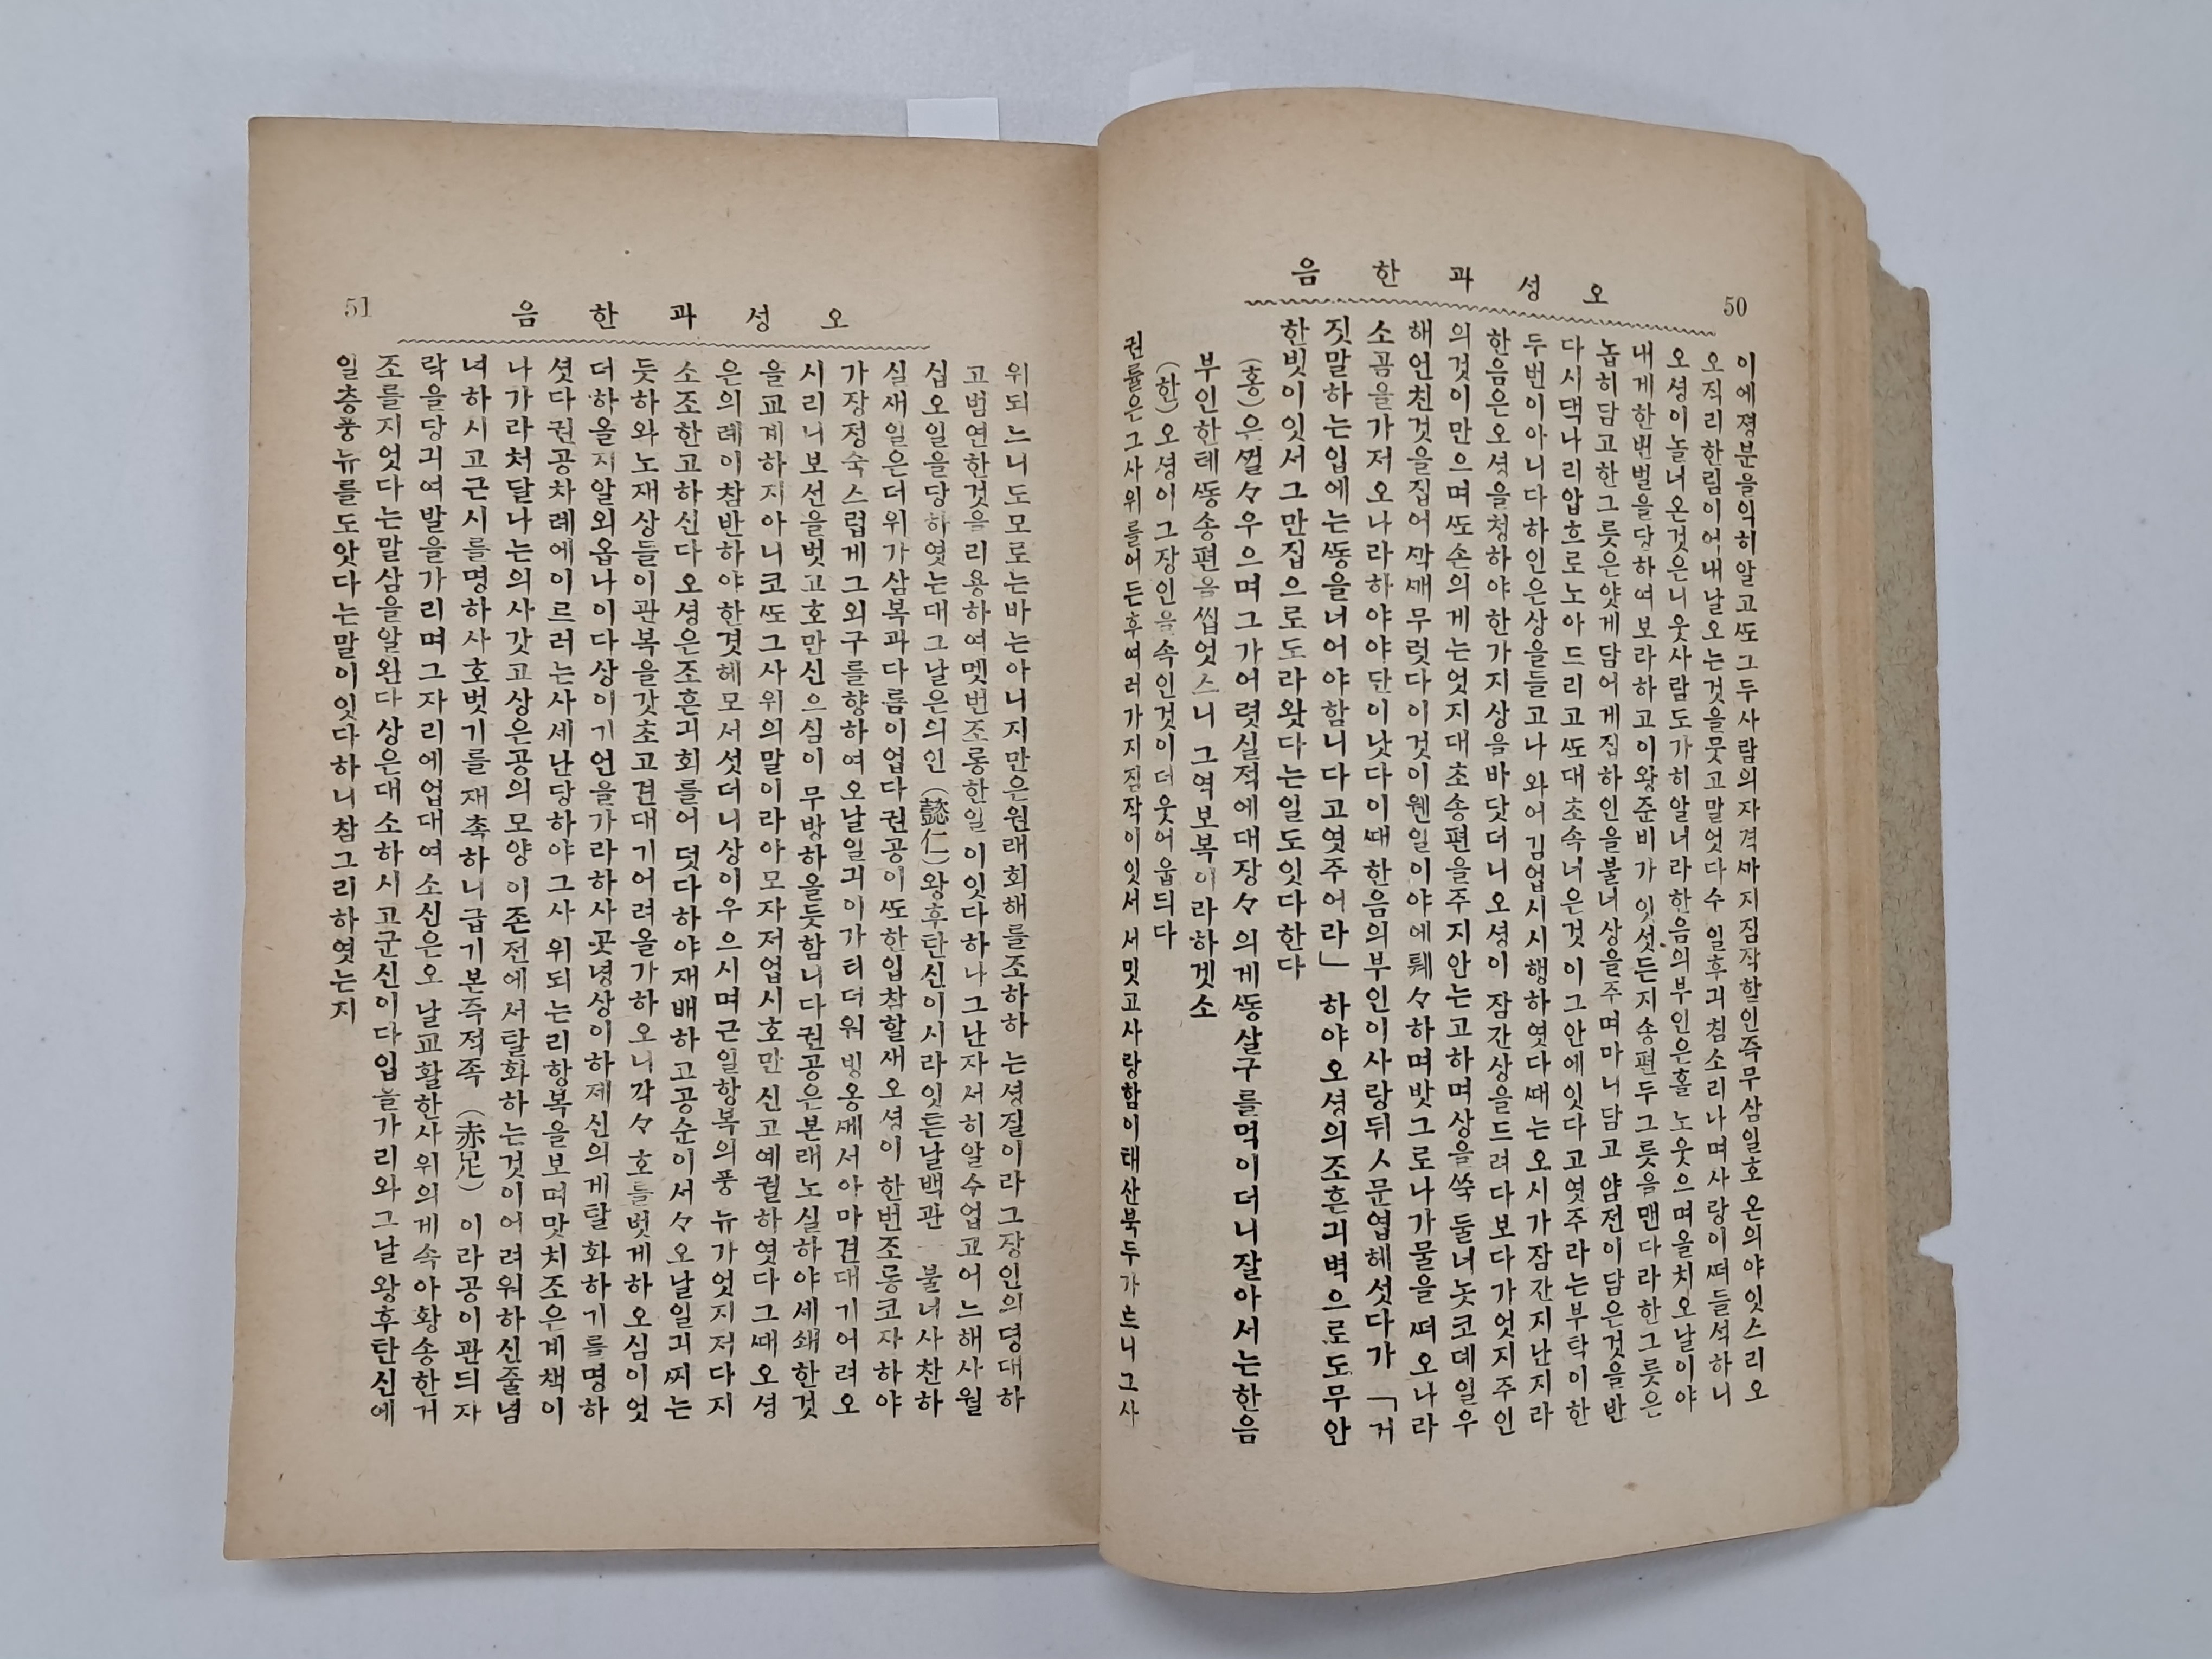 50
오성과한음
이에졍분을익히알고ᄯᅩ그두사람의자격ᄭᅡ지짐작할인즉무삼일호온의야잇스리오
오직리한림이어내날오는것을뭇고말엇다수일후긔침소리나며사랑이ᄯᅥ들석하니
오셩이놀너온것은니웃사람도가히알녀라한음의부인은홀노웃으며올치오날이야
내게한번벌을당하여보라하고이왕준비가잇섯든지송편두그릇을맨다라한그릇은
놉히담고한그릇은얏게담어게집하인을불너상을주며마니담고얌전이담은것을반
다시댁나리압흐로노아드리고ᄯᅩ대초속너은것이그안에잇다고엿주라는부탁이한
두번이아니다하인은상을들고나와어김업시시행하엿다ᄯᅢ는오시가잠간지난지라
한음은오셩을청하야한가지상을바닷더니오셩이잠간상을드려다보다가엇지주인
의것이만으며ᄯᅩ손의게는엇지대초송편을주지안는고하며상을쑥둘너놋코뎨일우
해언친것을집어ᄭᅡᆨᄭᅢ무럿다이것이웬일이야에퉤々하며밧그로나가물을ᄯᅥ오나라
소곰을가저오나라하야야단이낫다이ᄯᅢ한음의부인이사랑뒤ㅅ문엽헤섯다가「거
짓말하는입에는ᄯᅩᆼ을너어야함니다고엿주어라」하야오셩의조흔긔벽으로도무안
한빗이잇서그만집으로도라왓다는일도잇다한다
(홍)은ᄭᅥᆯ々우으며그가어렷실적에대장々의게ᄯᅩᆼ살구를먹이더니잘아서는한음
부인한테ᄯᅩᆼ송편을씹엇스니그역보복이라하겟소
(한)오셩이그장인을속인것이더웃어웁듸다
권률은그사위를어든후여러가지짐작이잇서서밋고사랑함이태산북두가트니그사
51
오성과한음
위되느니도모로는바는아니지만은원래회해를조하하는셩질이라그장인의뎡대하
고범연한것을리용하여멧번조롱한일이잇다하나그난자서히알수업고어느해사월
십오일을당하엿는대그날은의인(懿仁)왕후탄신이시라잇튼날백관一불너사찬하
실새일은더위가삼복과다름이업다권공이ᄯᅩ한입참할새오셩이한번조롱코자하야
가장정숙스럽게그외구를향하여오날일긔이가티더워빙옹ᄭᅦ서아마견대기어려오
시리니보선을벗고호만신으실이무방하올듯함니다권공은본래노실하야세쇄한것
을교계하지아니코ᄯᅩ그사위의말이라아모자저업시호만신고예궐하엿다그ᄯᅢ오셩
은의례이참반하야한겻헤모서섯더니상이우으시며근일항복의풍뉴가엇지저다지
소조한고하신다오셩은조흔긔회를어덧다하야재배하고공순이서々오날일긔ᄶᅵ는
듯하와노재상들이관복을갓초고견대기어려올가하오니각々호를벗게하오심이엇
더하올지알외옵나이다상이기언을가라하사곳녕상이하제신의게탈화하기를명하
셧다권공차례에이르러는사세난당하야그사위되는리항복을보며맛치조은계책이
나가라처달나는의사갓고상은공의모양이존전에서탈화하는것이어려워하신줄념
녀하시고근시를명하사호벗기를재촉하니급기본즉적족(赤足)이라공이관듸자
락을당긔여발을가리며그자리에업대여소신은오날교활한사위의게속아황송한거
조를지엇다는말삼을알왼다상은대소하시고군신이다입늘가리와그날왕후탄신에
일층풍뉴를도앗다는말이잇다하니참그리하엿는지